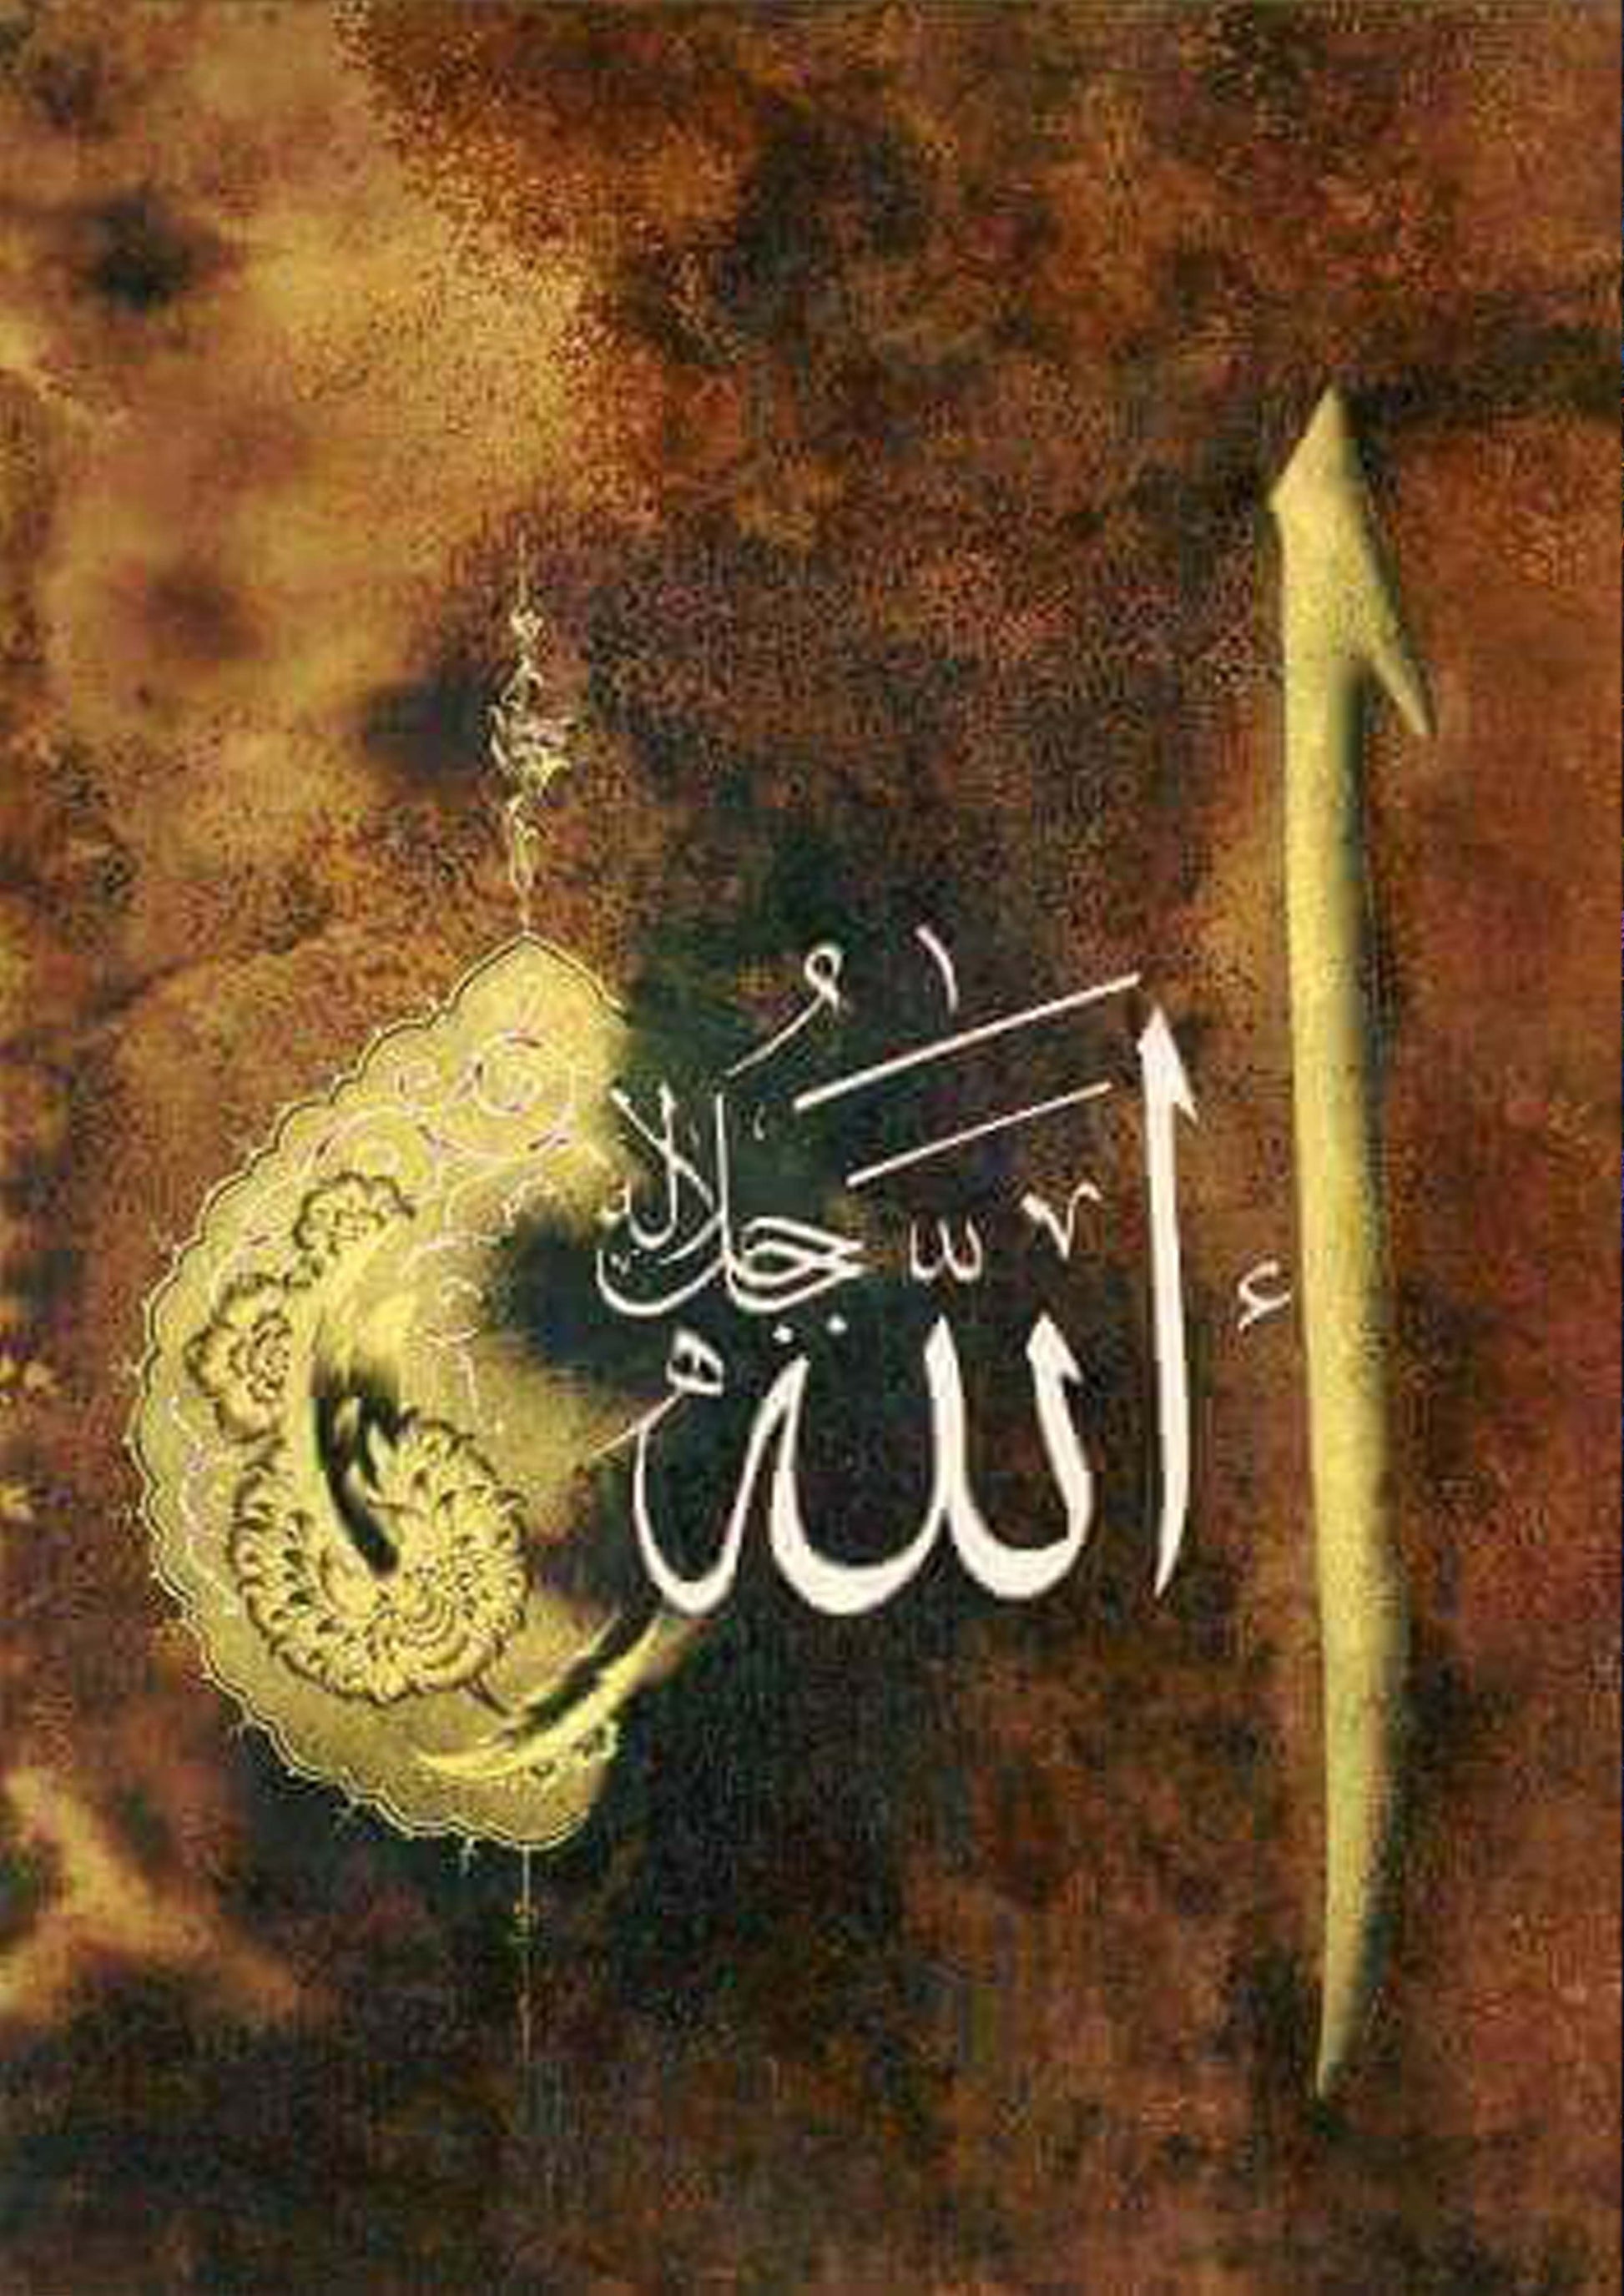 ا
الله جل جلاله